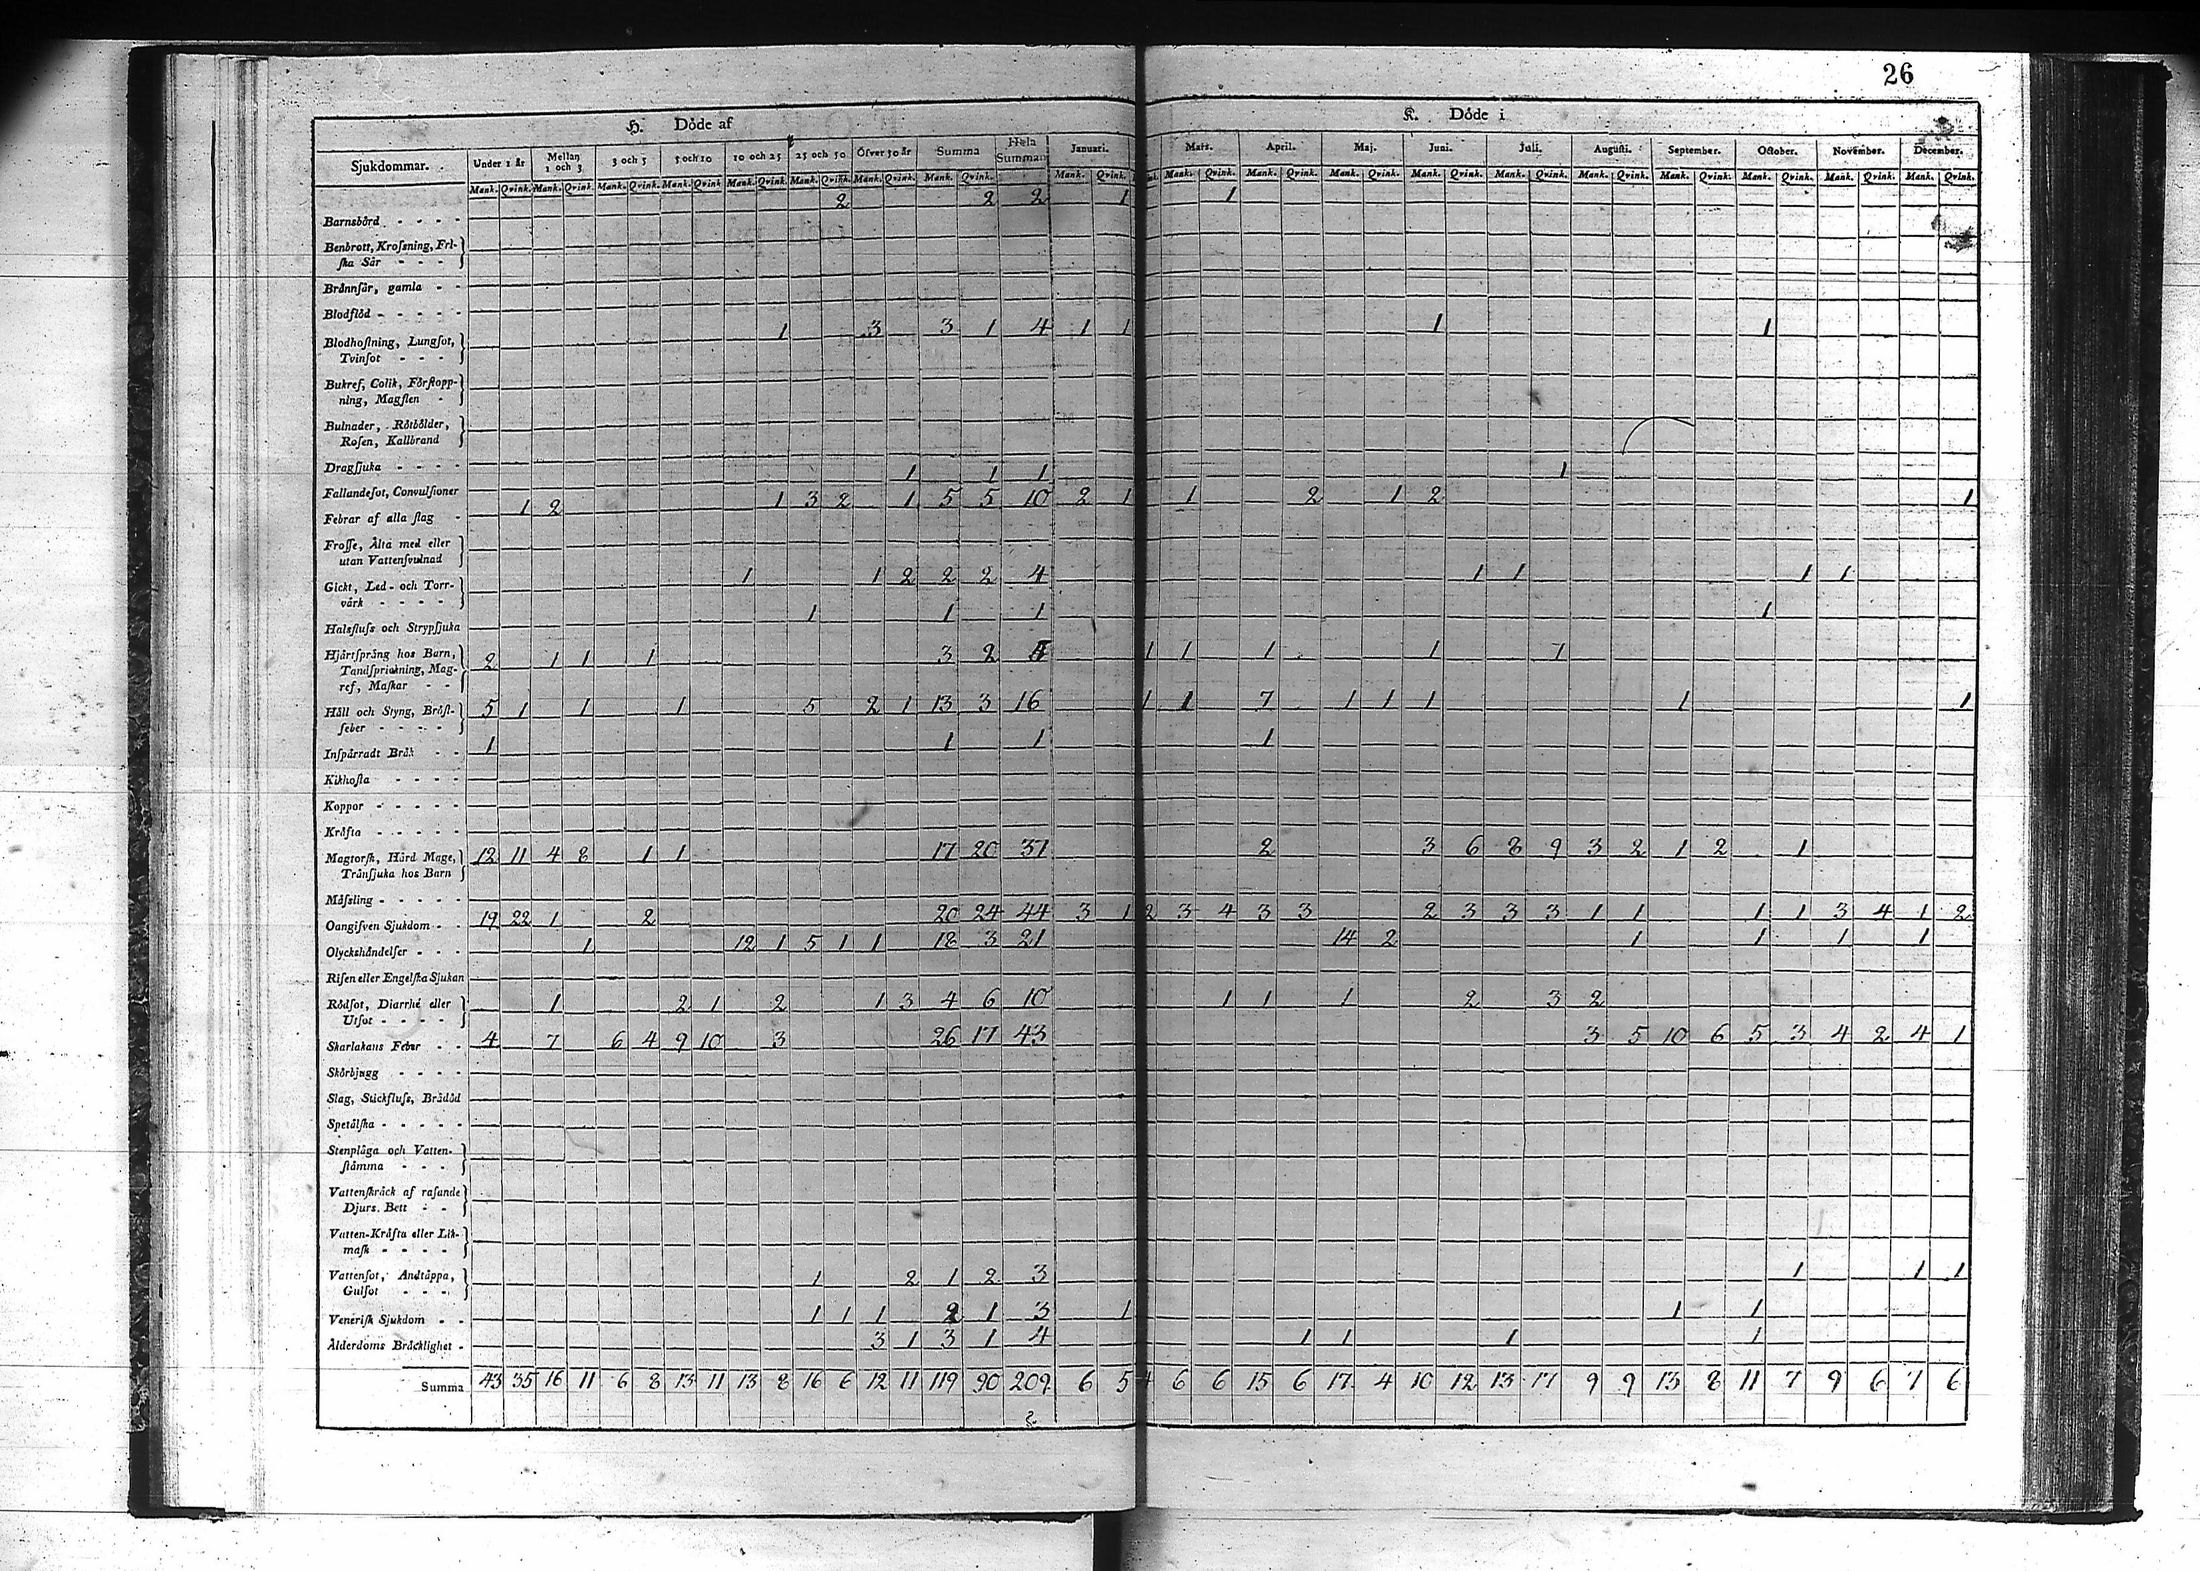 26
H. Döde af K. Döde i
Sjukdommar. Under 1 år Mellan 1 och 3 3 och 5 5 och 10 10 och 25 25 och 50 Öfver 50 år Summa Hela Summan Januari. Mars. April. Maj. Juni. Juli. Augusti. September. October. November. December.
Mank. Qvink. Mank. Qvink. Mank. Qvink. Mank. Qvink. Mank. Qvink. Mank. Qvink. Mank. Qvink. Mank. Qvink. Mank. Qvink. Mank. Qvink. Mank. Qvink. Mank. Qvink. Mank. Qvink. Mank. Qvink. Mank. Qvink. Mank. Qvink. Mank. Qvink. Mank. Qvink. Mank. Qvink.
Barnsbörd 2 2 2 1 1
Benbrott, Krossning, Fri-
ska Sår
Brännsår, gamla
Blodflöd
Blodhostning, Lungsot, 1 3 3 1 4 1 1 1 1
Tvinsot
Bukref, Colik, Förstopp-
ning, Magsten
Bulnader, Rötbölder,
Rosen, Kallbrand
Dragsjuka
Fallandesot, Convulsioner 1 1 1 1
Febrar af alla slag 1 2 1 3 2 1 5 5 10 2 1 1 2 1 2 1
Frosse, Älta med eller
utan Vattensvulnad
Gickt, Led- och Torr- 1 1 2 2 2 4 1 1 1 1
värk
Halsfluss och Strypsjuka 1 1 1 1
Hjärtsprång hos Barn, 2 1 1 1 3 2 1 1 1 1 1
Tandsprickning, Mag-
ref, Maskar
Håll och Styng, Bröst- 5 1 1 1 5 2 1 13 3 16 1 1 7 1 1 1 1 1
feber
Inspärradt Bråk 1 1 1 1
Kikhosta
Koppor
Kräfta
Magtorsk, Hård Mage, 12 11 4 8 1 1 17 20 37 2 3 6 8 9 3 2 1 2 1
Trånsjuka hos Barn
Mässling
Oangifven Sjukdom 19 22 1 2 20 24 44 3 1 2 3 4 3 3 2 3 3 3 1 1 1 1 3 4 1 2
Olyckshändelser 1 12 1 5 1 1 18 3 21 14 2 1 1 1 1
Risen eller Engelska Sjukan
Rödsot, Diarrhé eller 1 2 1 2 1 3 4 6 10 1 1 1 2 3 2
Utsot
Skarlakans Feber 4 7 6 4 9 10 3 26 17 43 3 5 10 6 5 3 4 2 4 1
Skörbjugg
Slag, Stickfluss, Brådöd
Spetälska
Stenplåga och Vatten-
stämma
Vattenskräck af rasande
Djurs Bett
Vatten-Kräfta eller Lik-
mask
Vattensot, Andtäppa, 1 2 1 2 3 1 1 1
Gulsot
Venerisk Sjukdom 1 1 1 2 1 3 1 1 1
Ålderdoms Bräcklighet 3 1 3 1 4 1 1 1 1
Summa 43 35 16 11 6 8 13 11 13 8 16 6 12 11 119 90 209 6 5 4 6 6 15 6 17 4 10 12 13 17 9 9 13 8 11 7 9 6 7 6